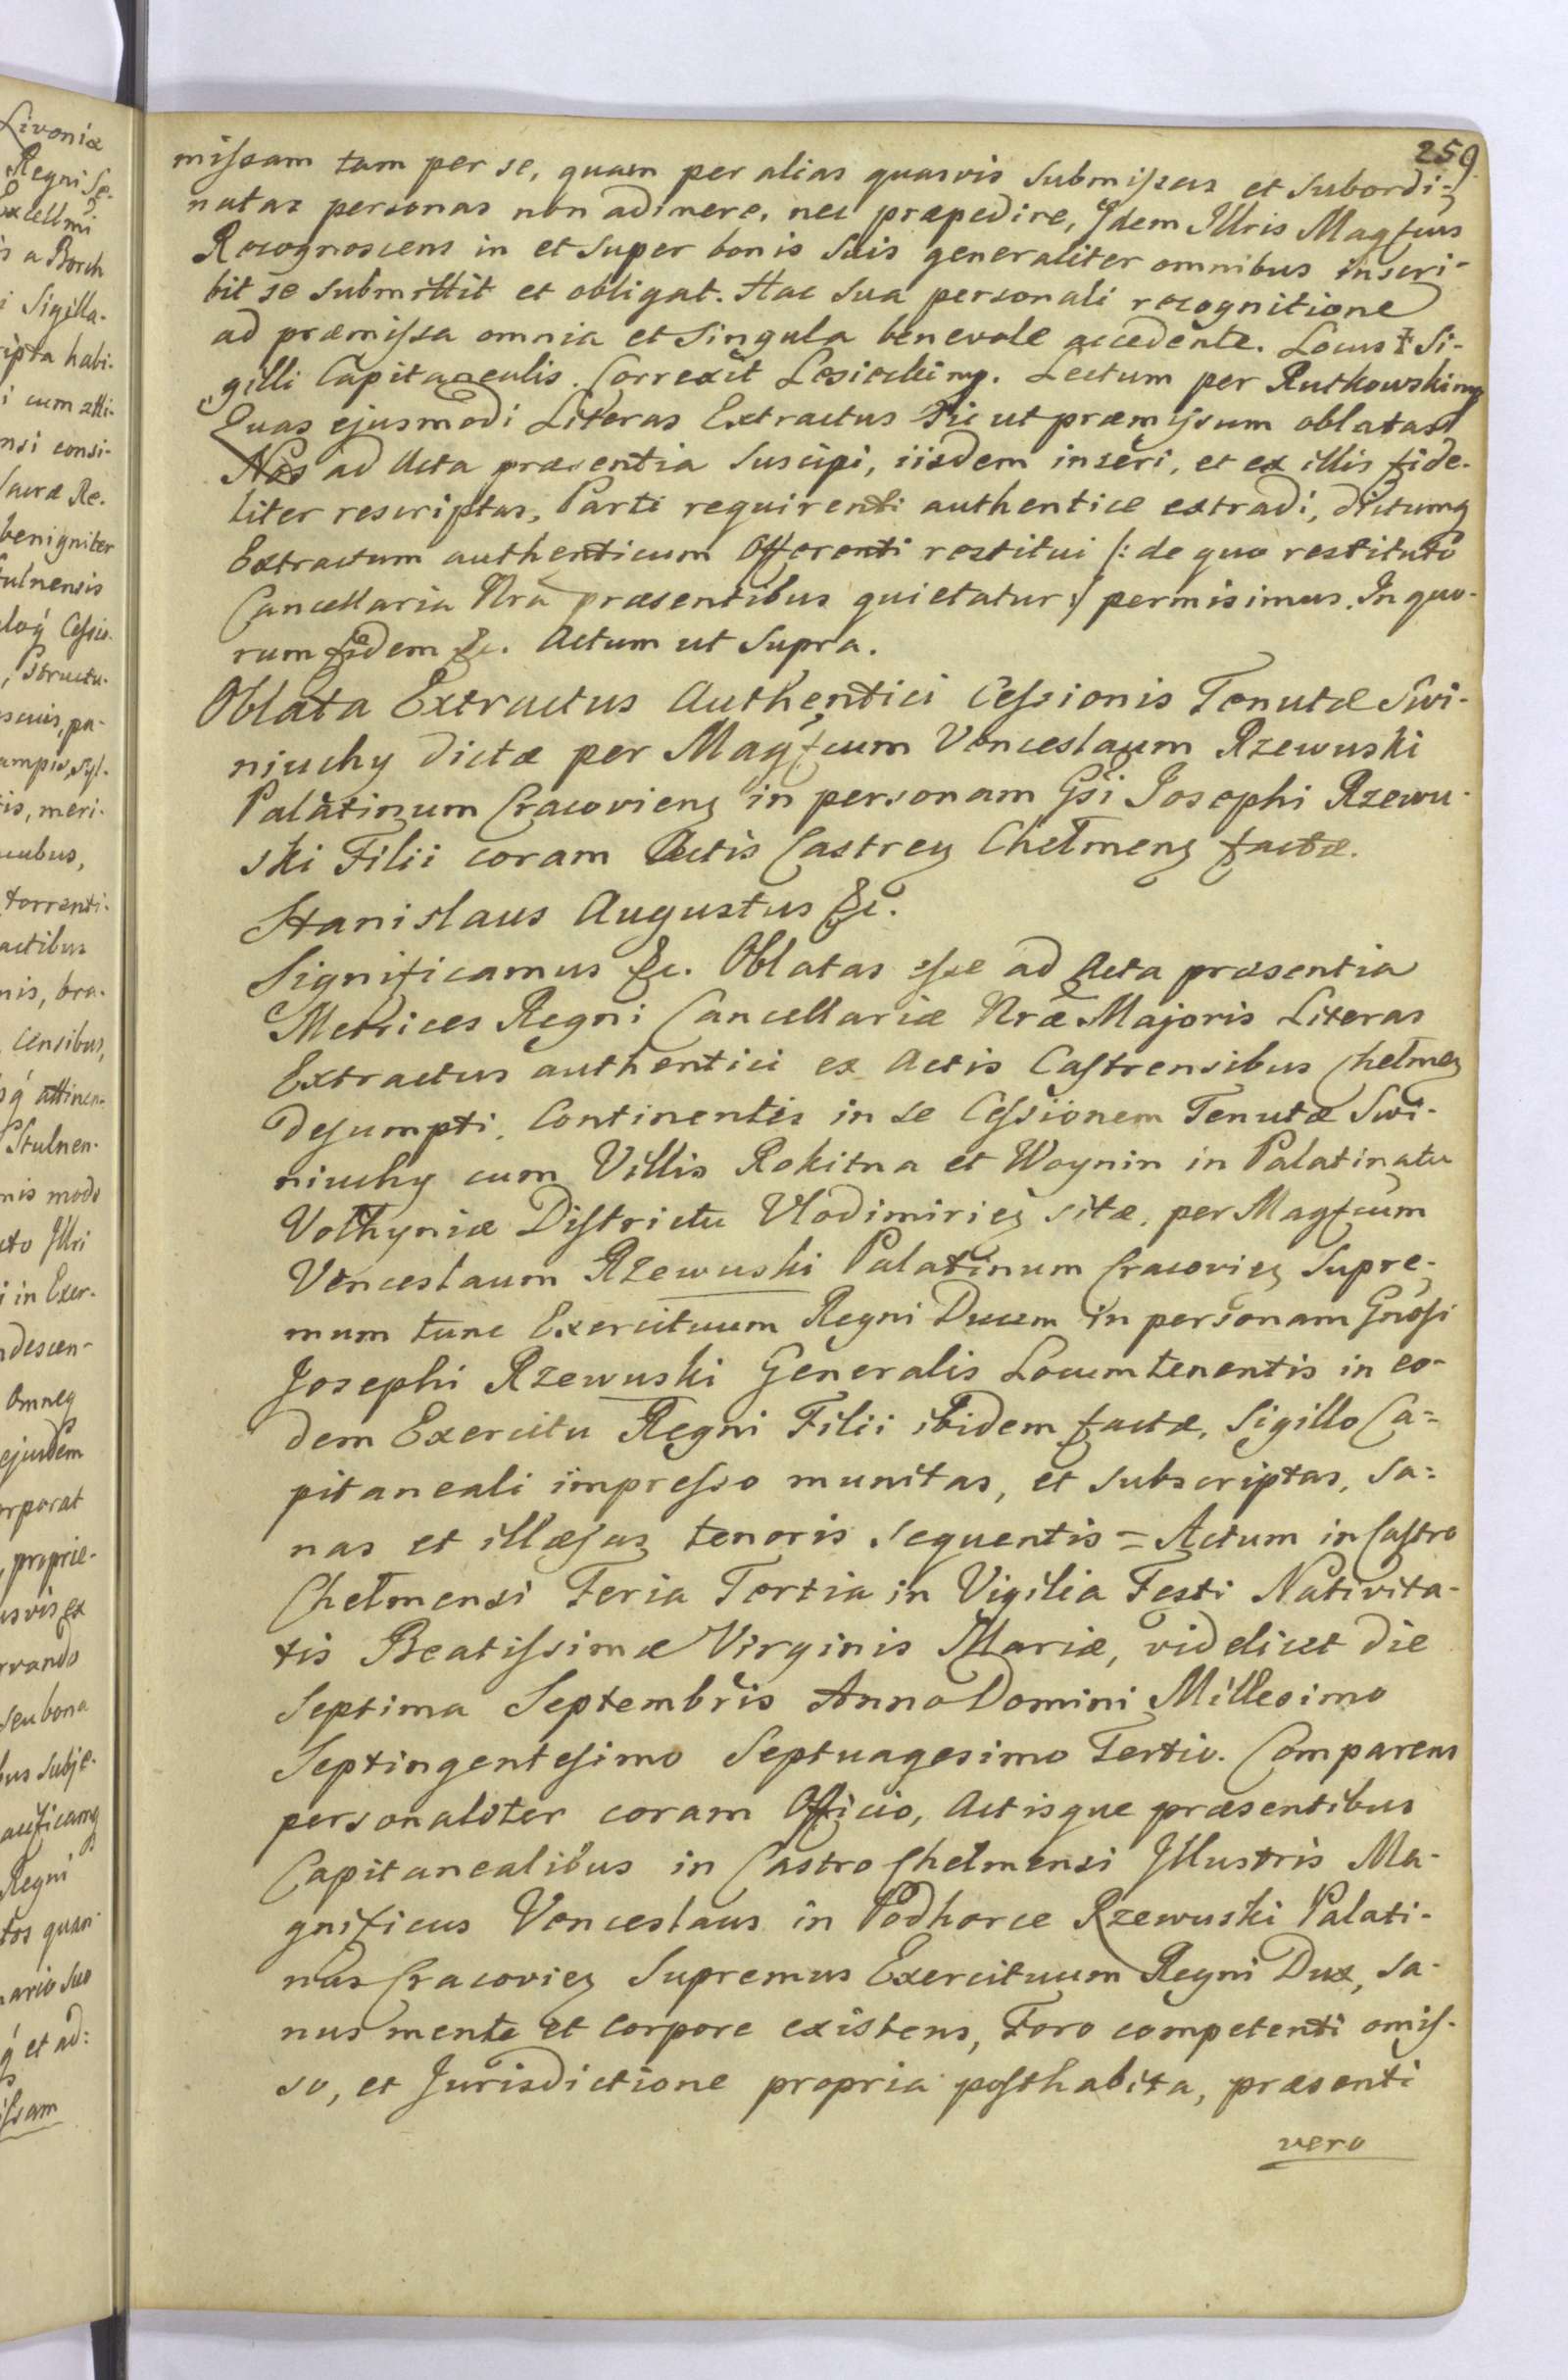 259
missam tam per se, quam per alias quasvis submissas et subordi-
natas personas non adimere, nec præpedire, Idem Illris Magfcus
Recognoscens in et super bonis suis generaliter omnibus inscri-
bit se submittit et obligat. Hac sua personali recognitione
ad præmissa omnia et singula benevole accedente. Locus Si-
gilli Capitanealis. Correxit Losiecki mp. Lectum per Rutkowski mp
Quas ejusmodi Literas Extractus sic ut præmissum oblatas
Nos ad Acta præsentia suscipi, iisdem inseri, et ex illis fide-
liter rescriptas, Parti requirenti authentice extradi, dictumq
Extractum authenticum Offerenti restitui /: de quo restituto
Cancellaria Nra præsentibus quietatur :/ permisimus. In quo-
rum fidem &c. Actum ut supra.
Oblata Extractus Authentici Cessionis Tenutæ Swi-
niuchy dictæ per Magfcum Venceslaum Rzewuski
Palatinum Cracovieng in personam Gsi Josephi Rzewu-
ski Filii coram Actis Castreng Chelmeng factæ.
Stanislaus Augustus &c.
Significamus &c. Oblatas esse ad Acta præsentia
Metrices Regni Cancellariæ Nræ Majoris Literas
Extractus authentici ex Actis Castrensibus Chelmeg
desumpti, Continentis in se Cessionem Tenutæ Swi-
niuchy cum Villis Rokitna et Woynin in Palatinatu
Volhyniæ Districtu Vlodimirieg sitæ, per Magfcum
Venceslaum Rzewuski Palatinum Cracovieg Supre-
mum tunc Exercituum Regni Ducem in personam Gnosi
Josephi Rzewuski Generalis Locumtenentis in eo-
dem Exercitu Regni Filii ibidem factæ, Sigillo Ca=
pitaneali impresso munitas, et subscriptas, sa=
nas et illæsas tenoris sequentis = Actum in Castro
Chelmensi Feria Tertia in Vigilia Festi Nativita-
tis Beatissimæ Virginis Mariæ, videlicet die
Septima Septembris Anno Domini Millesimo
Septingentesimo Septuagesimo Tertio. Comparens
personaliter coram Officio, Actisque præsentibus
Capitanealibus in Castro Chelmensi Illustris Ma-
gnificus Venceslaus in Podhorce Rzewuski Palati-
nus Cracovieg Supremus Exercituum Regni Dux, sa-
nus mente et corpore existens, Foro competenti omis-
so, et Jurisdictione propria posthabita, præsenti
vero